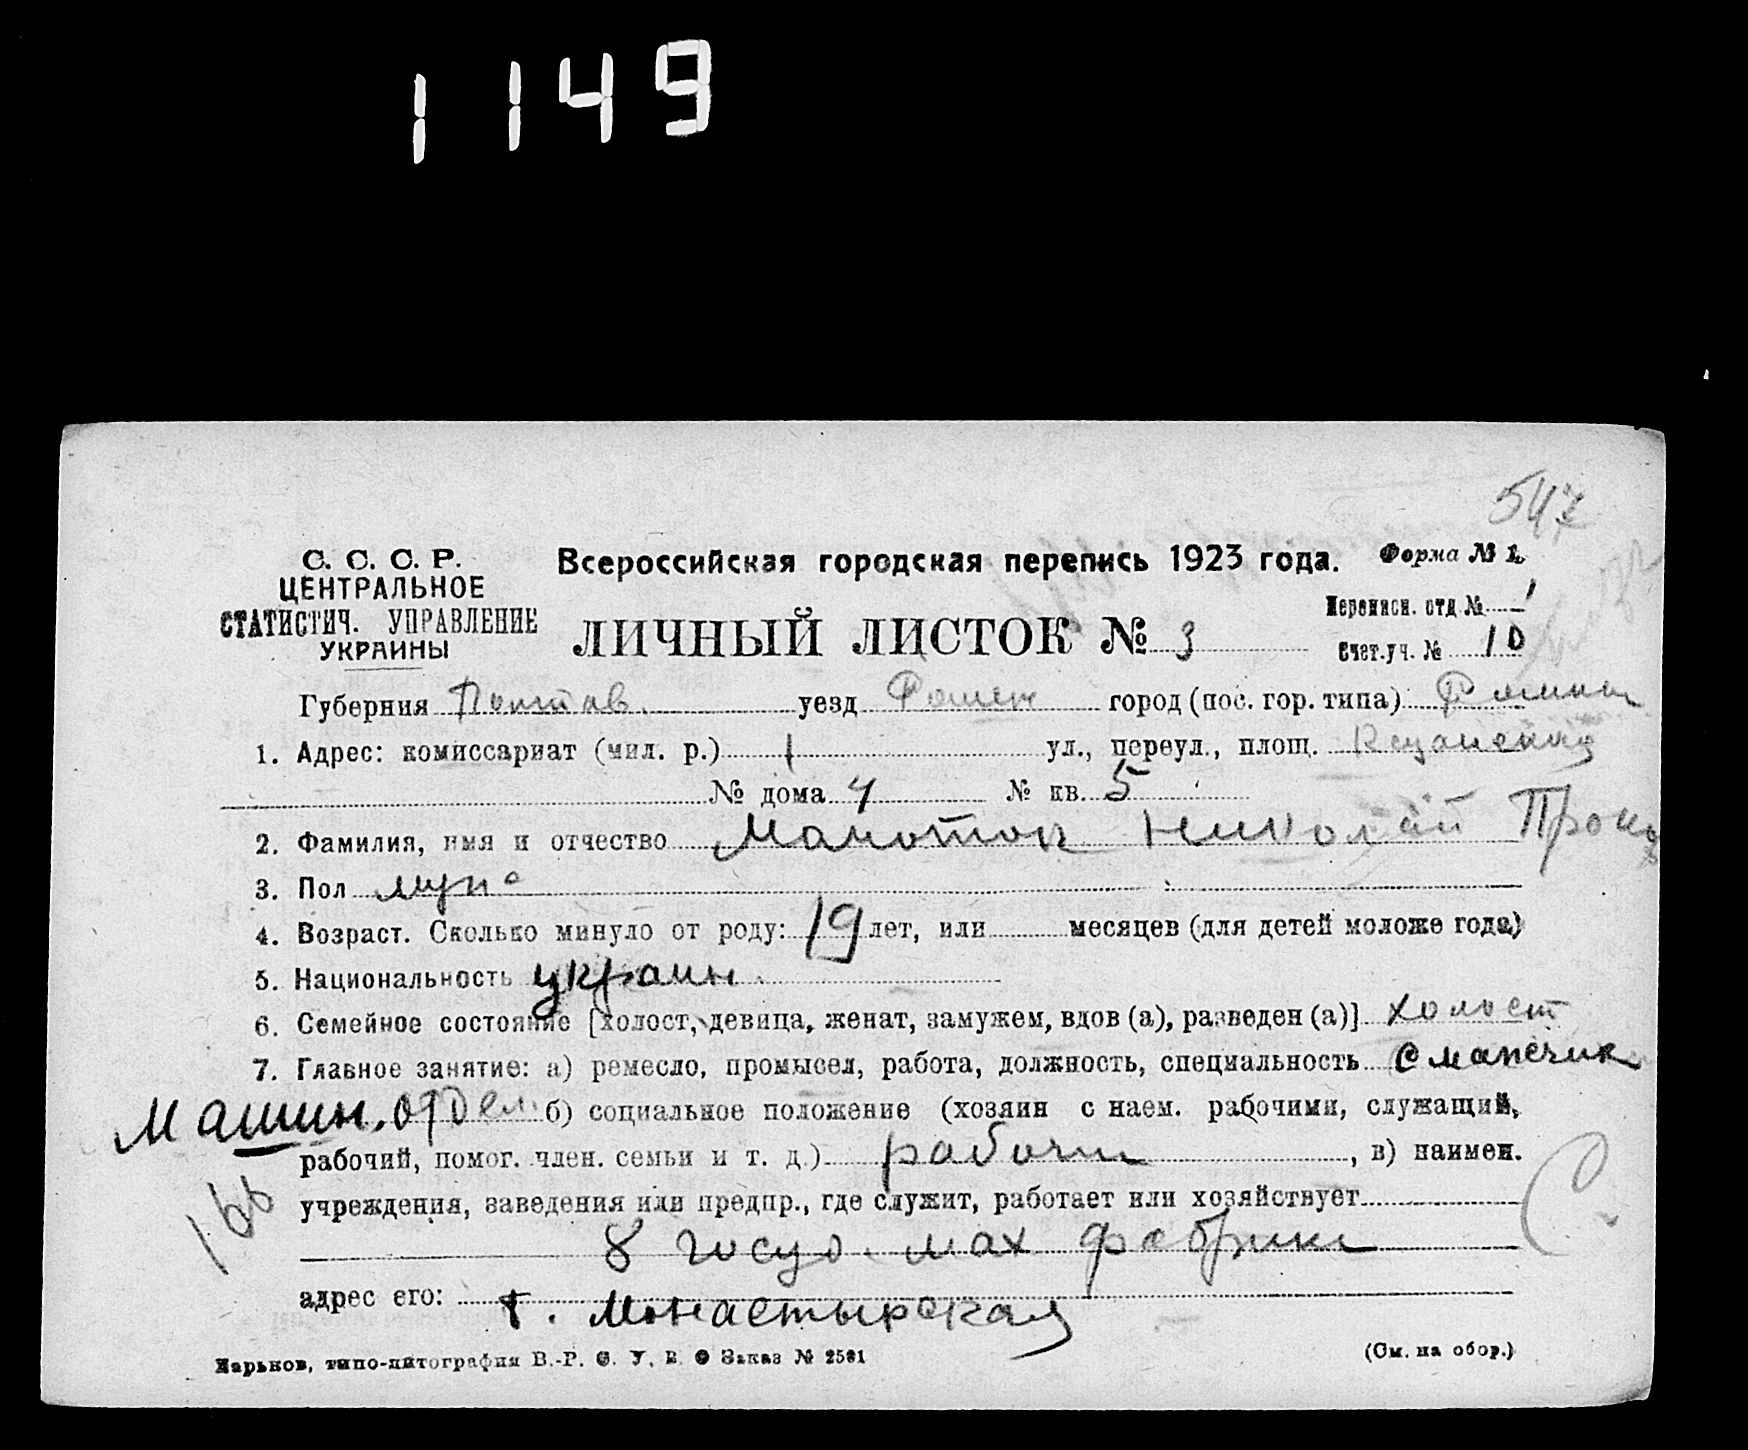 1149
547
С. С. С. Р.
ЦЕНТРАЛЬНОЕ
СТАТИСТИЧ. УПРАВЛЕНИЕ
УКРАИНЫ
Всероссийская городская перепись 1923 года.
Форма № 1.
ЛИЧНЫЙ ЛИСТОК № 3
Переписн. отд № 1
Счет.уч. № 10
Губерния Полтав. уезд Ромен город (пос. гор. типа) Ромны
1. Адрес: комиссариат (мил. р.) 1 ул., переул., площ.
№ дома 4 № кв. 5
2. Фамилия, имя и отчество Николай Проко
3. Пол муж
4. Возраст. Сколько минуло от роду: 19 лет, или месяцев (для детей моложе года)
5. Национальность украин.
6. Семейное состояние [холост, девица, женат, замужем, вдов (а), разведен (а)] холост
7. Главное занятие: а) ремесло, промысел, работа, должность, специальность
Машин. отдел б) социальное положение (хозяин с наем. рабочими, служащий,
рабочий, помог. член. семьи и т. д.) рабочи , в) наимен.
166
учреждения, заведения или предпр., где служит, работает или хозяйствует
8 госуд. мах фабрики
адрес его: Монастырская
Харьков, типо-литография В.-Р. С. У. В. О Заказ № 2581
(См. на обор.)